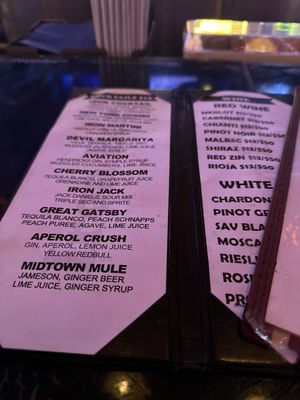 COCKTAILS $15
IRON COCKTAIL
IRON MARTINI
DEVIL MARGARITA
AGAVE SYRUP
AVIATION
HENDRICKS GIN, SYMPLE SYRUP
MUDDLED CUCUMBERS, LIME JUICE
CHERRY BLOSSOM
TEQUILA BLANCO, GRAPEFRUIT JUICE
GRENADINE AND LIME JUICE
IRON JACK
JACK DANIELS, SOUR MIX
TRIPLE SEC AND SPRITE
GREAT GATSBY
TEQUILA BLANCO, PEACH SCHNAPPS
PEACH PUREE, AGAVE, LIME JUICE
APEROL CRUSH
GIN, APEROL, LEMON JUICE
YELLOW REDBULL
MIDTOWN MULE
JAMESON, GINGER BEER
LIME JUICE, GINGER SYRUP
WINE
RED WINE
MERLOT $13/$50
CABERNET $13/$50
CHIANTI $13/$50
PINOT NOIR $13/$50
MALBEC $13/$50
SHIRAZ $13/$50
RED ZIN $13/$50
RIOJA $13/$50
WHITE
CHARDON
PINOT GR
SAV BLA
MOSCA
RIESLI
ROS
PR